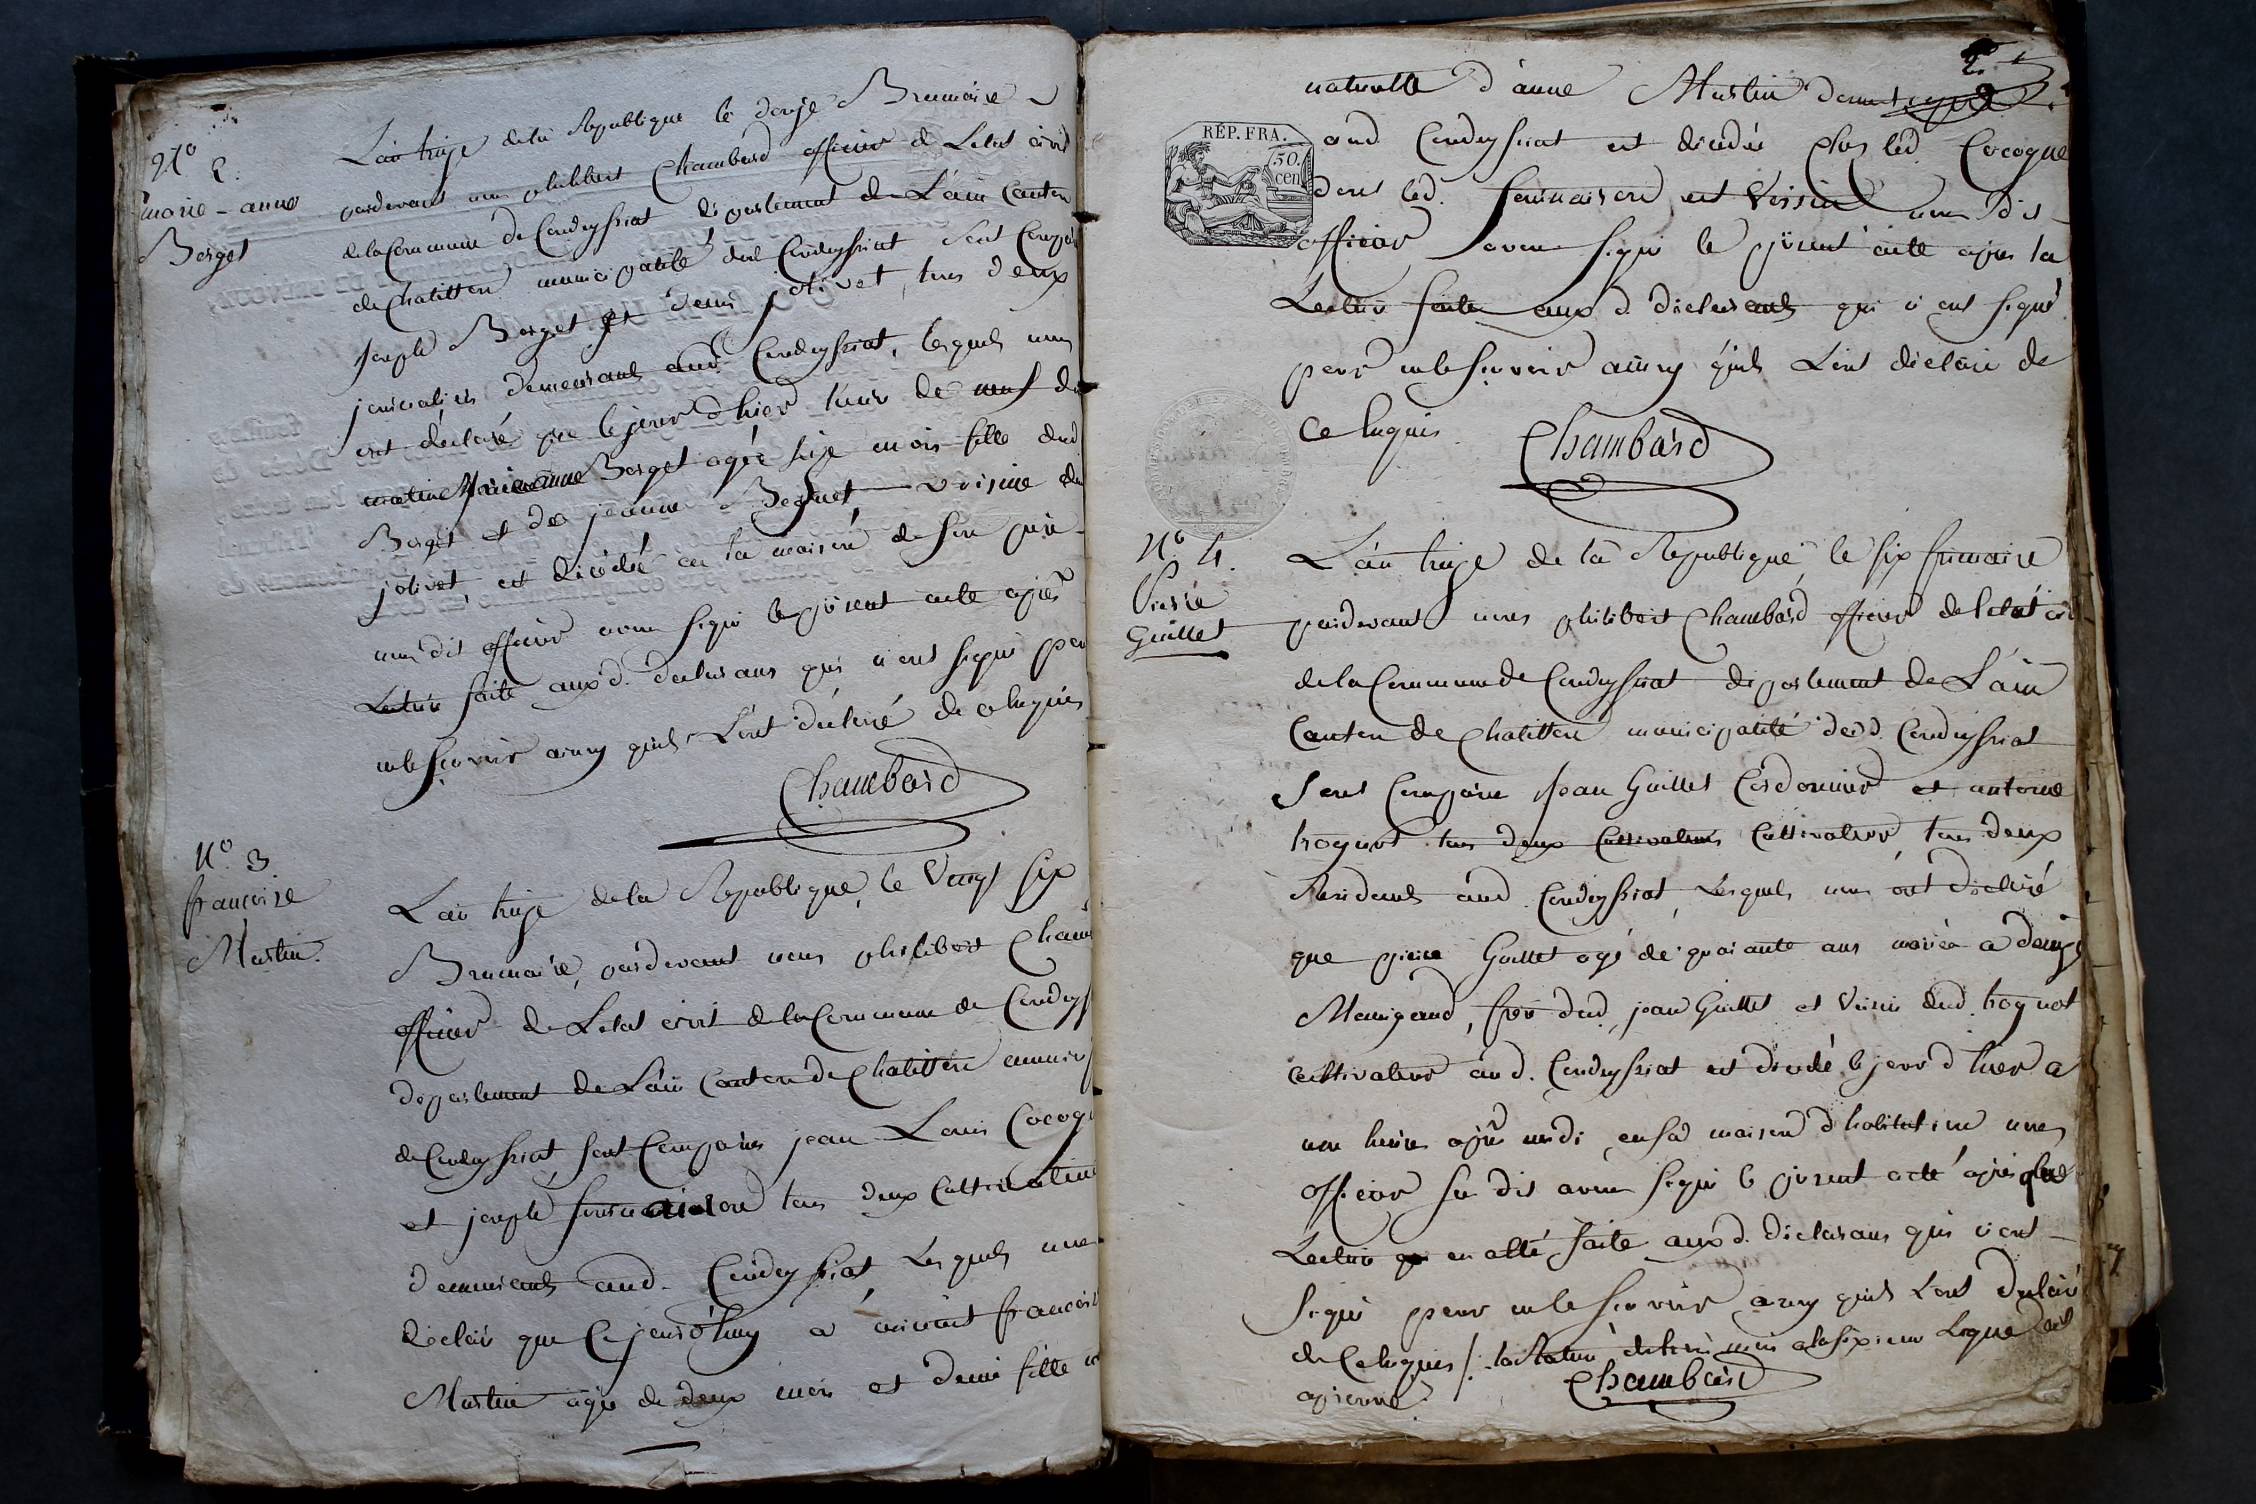 N° 2.
marie-anne
Berget
L'an treize de la Republique le douze Brumaire
pardevant nous philibert Chambard officier de L'etat civil
de la Commune de Condeyssiat departement de L'ain Canton
de Chatillon municipalité dud Condeyssiat Sont Comparu
joseph Berget et denis jolivet, tous deux
journaliers demeurants aud Condeyssiat, lesquels nous
ont déclaré que le jour d'hier heure de neuf du
matin Marieanne Berget agée seize mois fille dud
Berget et de jeanne voisine du
jolivet, est décédée en la maison de son père
nous dit officier avons signé le présent acte après
Lecture faite aux d. declarans qui n'ont signé pour
ne le sçavoir ainsy quils L'ont déclaré de ce luquis
Chambard
N° 3.
francoise
Martin.
L'an treize de la Republique, le Vingt six
Brumaire, pardevant nous philibert Cham
officier de L'etat civil de la Commune de Condeys
departement de L'ain Canton de Chatillon municip
de Condeyssiat sont Comparus jean Louis Cocog
et joseph tous deux Cultivateurs
demeurants aud. Condeyssiat, Lesquels nous
déclaré que Cejourd'huy a francoise
Martin agée de deux mois et demi fille
2
naturelle d'anne Martin
aud Condeyssiat est décédée Chez led. Cocogne
dont led. est Voisin nous dit
officier avons signé le présent acte après la
Lecture faite aux d. déclarants qui n'ont signé
pour ne le sçavoir ainsy quils L'ont déclaré de
Ce luquis.
Chambard
RÉP. FRA.
50.
cen
N° 4.
Pierre
Guillet
L'an treize de la Republique le six frimaire
pardevant nous philibert Chambard officier de l'etat civil
de la Commune de Condeyssiat departement de L'ain
Canton de Chatillon municipalité dud. Condeyssiat
Sont Comparu jean Guillet Cordonnier et antoine
troquot tous deux Cultivateurs Cultivateur, tous deux
Residents aud. Condeyssiat, Lesquels nous ont déclaré
que pierre Guillet agé de quarante ans marié a denize
Manigand, frère dud, jean Guillet et Voisin dud. troquot
Cultivateur aud. Condeyssiat est décédé le jour d'hier a
une heure après midi en sa maison d'habitation nous
officier susdit avons signé le présent acte après que
Lecture en a été faite aux d. déclarans qui n'ont
signé pour ne le sçavoir ainsy quils L'ont déclaré
de Ce luquis /.
Chambard